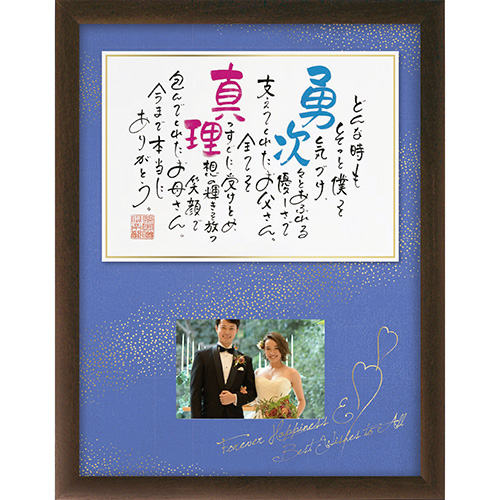 どんな時も
そっと僕を
勇気づけ、
次々とあふれる
優しさで
支えてくれたお父さん。
全てを
真っすぐに受けとめ
理想の輝きを放つ
笑顔で
包んでくれたお母さん。
今まで本当に
ありがとう。
Forever Happiness &
Best Wishes to All